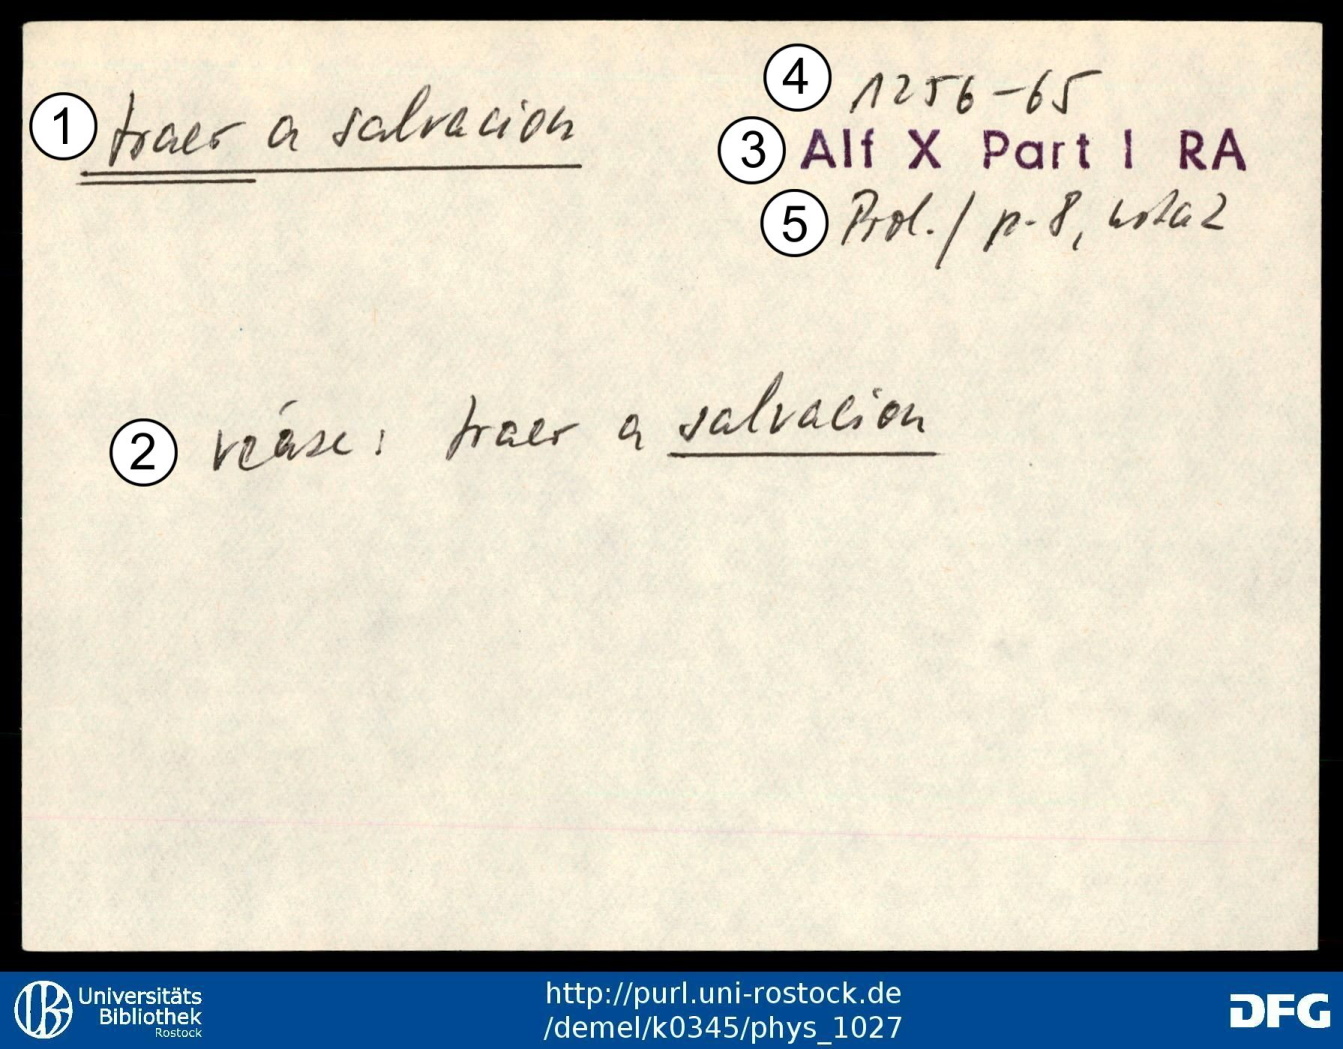 1 traer a salvacion
4 1256-65
3 Alf X Part I RA
5 Prol. / p. 8, nota 2
2 véase: traer a salvacion
Universitäts
Bibliothek
Rostock
http://purl.uni-rostock.de
/demel/k0345/phys_1027
DFG